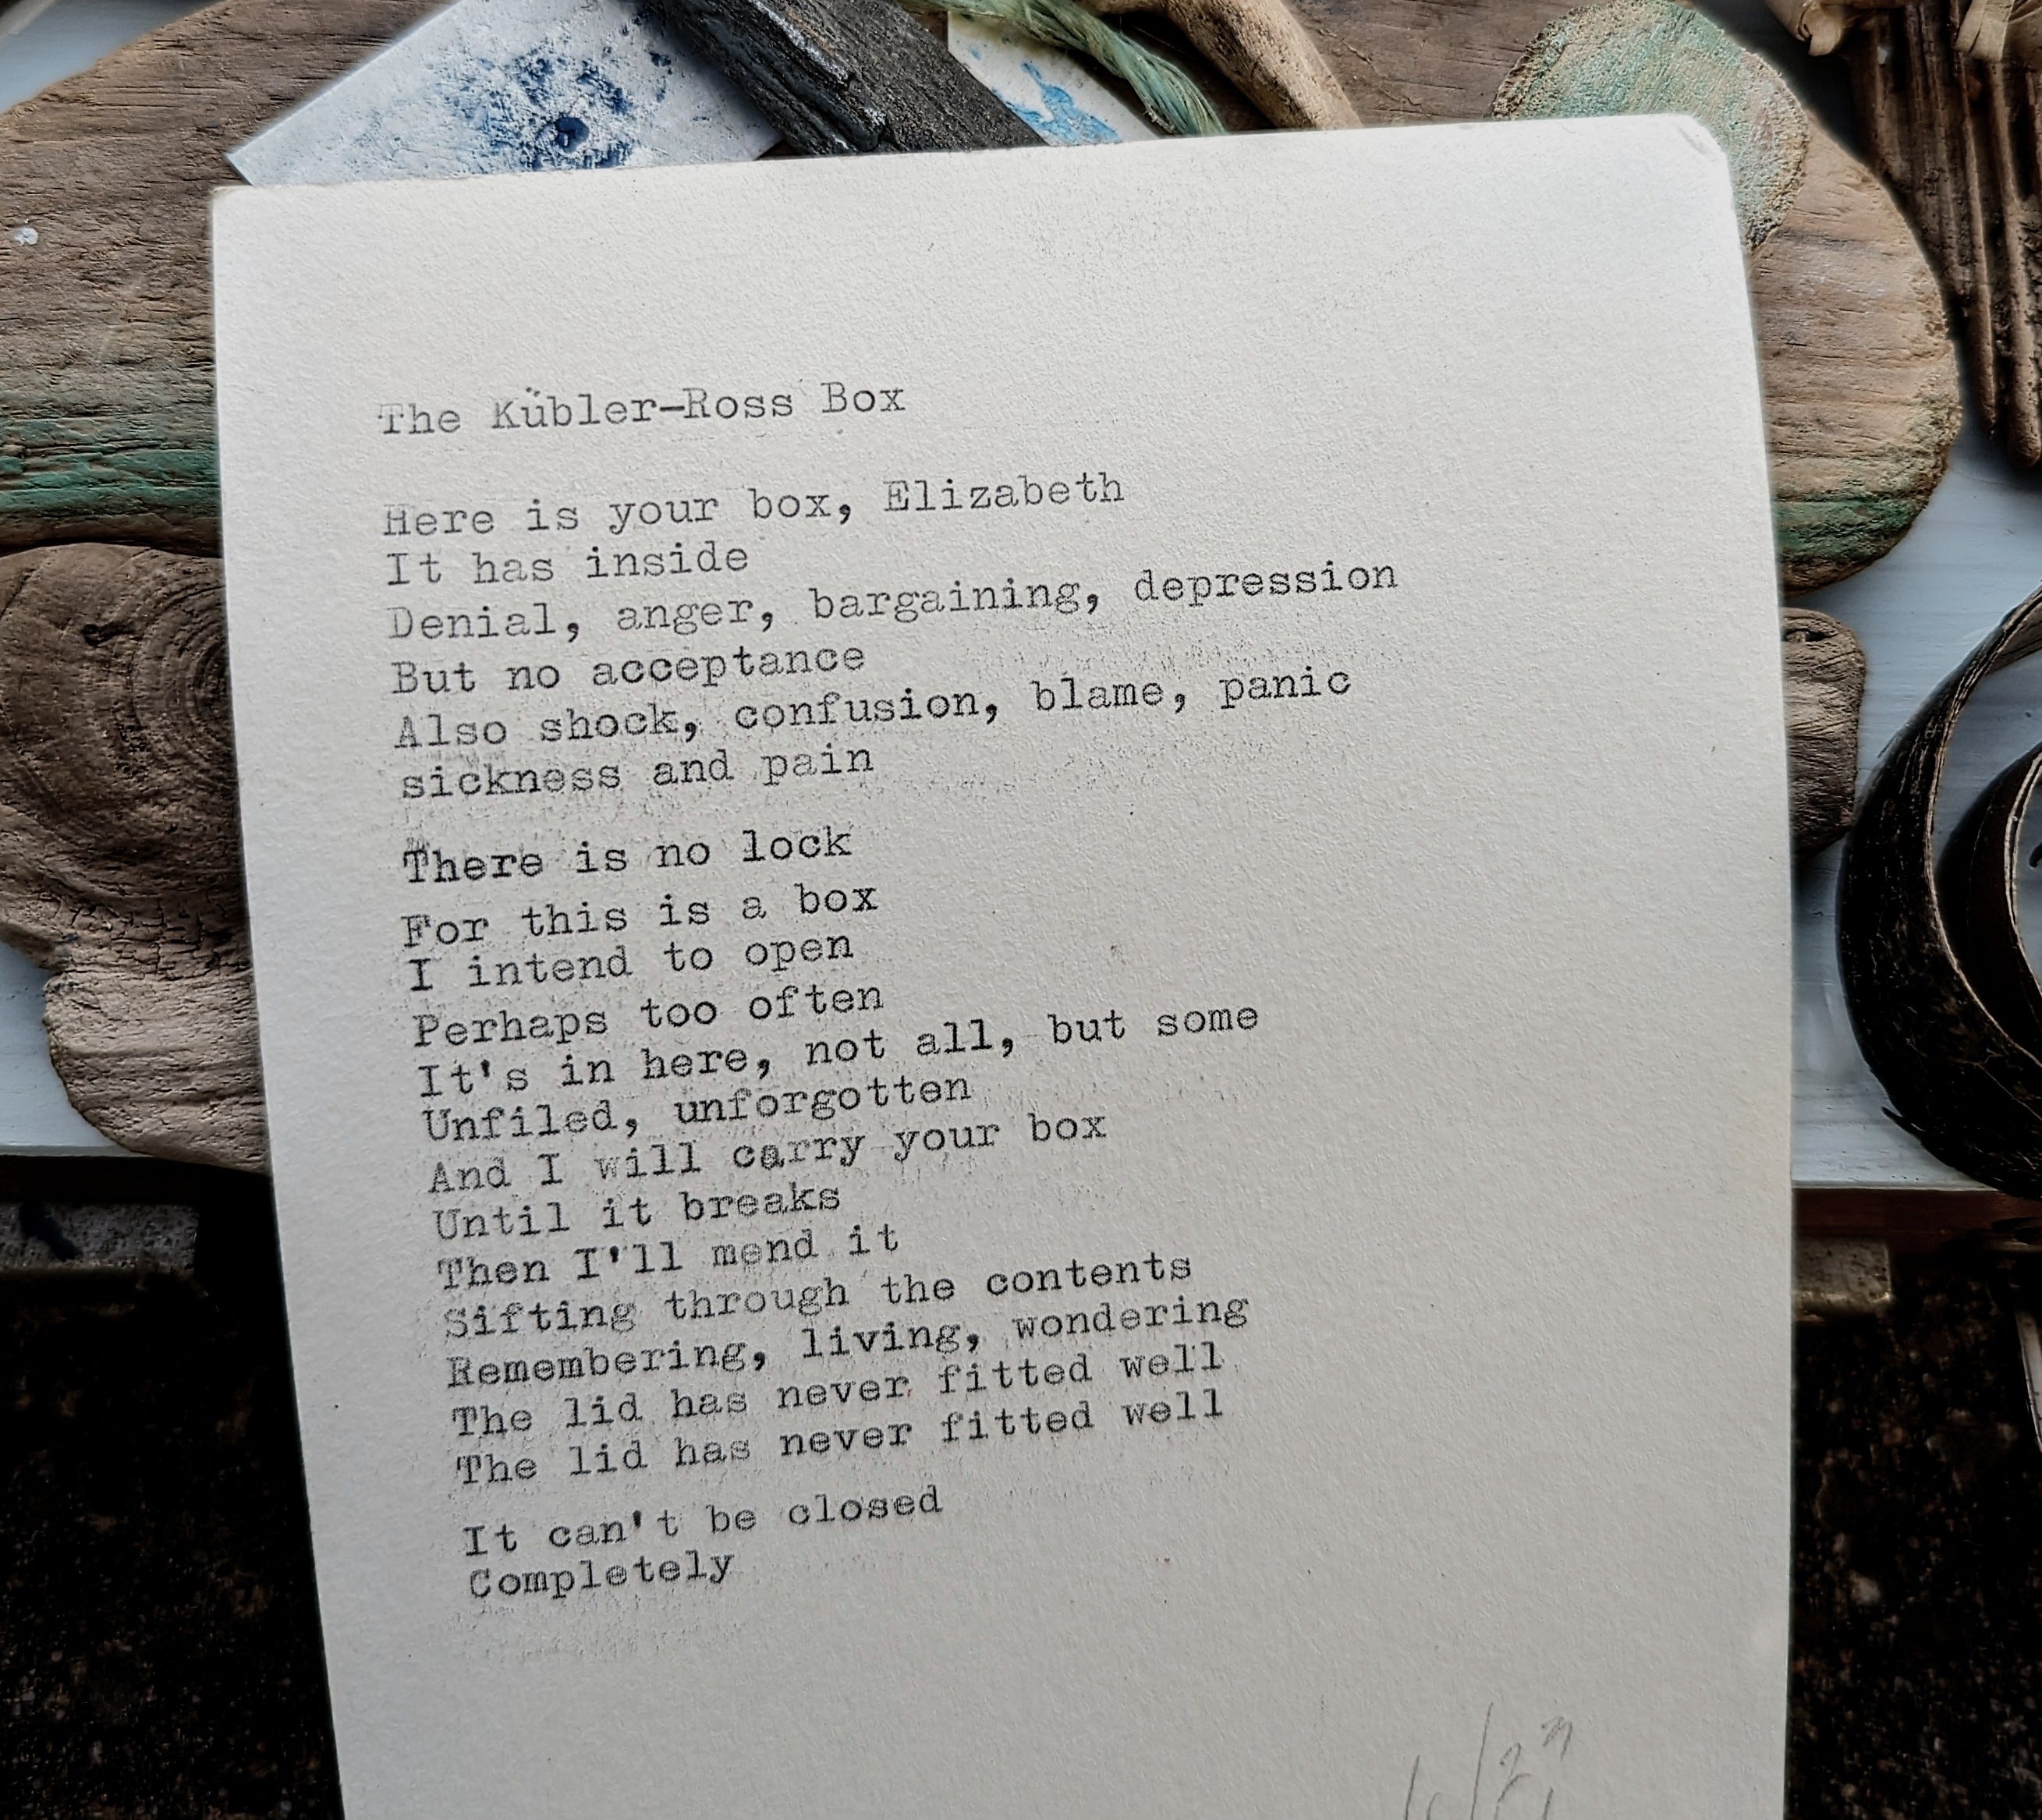 The Kübler-Ross Box
Here is your box, Elizabeth
It has inside
Denial, anger, bargaining, depression
But no acceptance
Also shock, confusion, blame, panic
sickness and pain
There is no lock
For this is a box
I intend to open
Perhaps too often
It's in here, not all, but some
Unfiled, unforgotten
And I will carry your box
Until it breaks
Then I'll mend it
Sifting through the contents
Remembering, living, wondering
The lid has never fitted well
The lid has never fitted well
It can't be closed
Completely